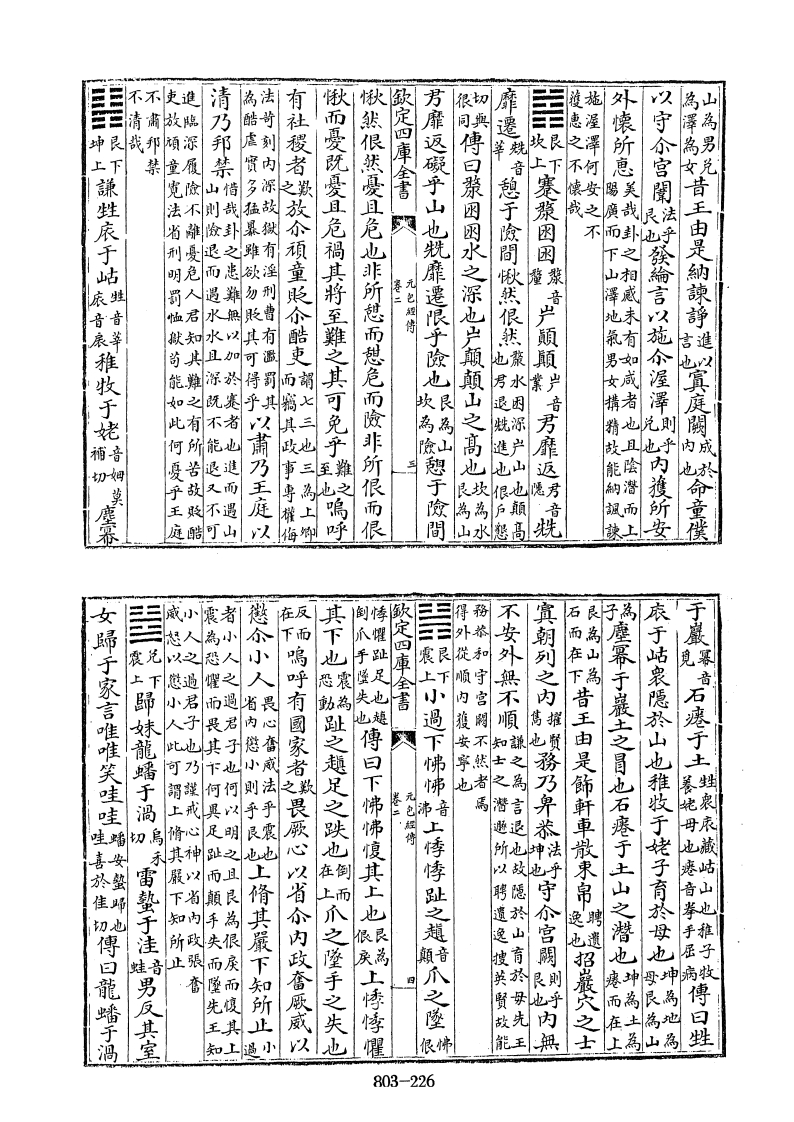 山為男兑為澤為女昔王由是納諫諍進以言也寘庭闕成於内也命童僕
以守尒宫闈法乎艮也發綸言以施尒渥澤則乎兑也内獲所安
外懐所恵美哉卦之相感未有如咸者也且陰潛而上賜廣而下山澤地氣男女構精故能納諷諫
施渥澤何安之不獲恵之不懐哉
䷦艮下坎上蹇漀困困漀音釐屵顛顛屵音業君靡返君音隱兟
靡遷兟音莘憩于險間愀然佷然漀水困深屵山也顛髙也君退兟進也佷戶懇
切與很同傳曰漀困困水之深也屵顛顛山之髙也坎為水艮為山
君靡返礙乎山也兟靡遷限乎險也艮為山坎為險憩于險間
愀然佷然憂且危也非所憩而憩危而險非所佷而佷
愀而憂既憂且危禍其將至難之其可免乎難之至也嗚呼
欽定四庫全書 元包經傳 卷二 三
有社稷者歎之放尒頑童貶尒酷吏謂七三也三為上卿而竊其政事專權侮
法苛刻内深故獄有淫刑曹有濫罰其為酷虐實多猛暴雖欲勿貶其可得乎以肅乃王庭以
清乃邦禁借哉卦之患難無以加於蹇者也進而遇山山則險退而遇水水且深既不能退又不可
進臨深履險不離憂危人君知其難之有所苦故貶酷吏放頑童寛法省刑明罰恤獄苟能如此何憂乎王庭
不肅邦禁不清哉
䷎艮下坤上謙甡庡于岵甡音莘庡音扆稚牧于姥音姆莫補切塵冪
于巖冪音覓石癃于土甡衆庡藏岵山也稚子牧養姥母也癃音拳手屈病傳曰甡
庡于岵衆隠於山也稚牧于姥子育於母也坤為地為母艮為山
為子塵冪于巖土之冒也石癃于土山之潛也坤為土為癃而在上
艮為山為石而在下昔王由是飾軒車散束帛聘遺逸也招巖穴之士
寘朝列之内擢賢雋也務乃卑恭法乎坤也守尒宫闕則乎艮也内無
不安外無不順謙之為言退也故隠於山育於母先王知士之潛遯所以聘遺逸搜英賢故能
務恭和守宫闕不然者焉得外從順内獲安寧也
䷽艮下震上小過下怫怫音沸上悸悸趾之趲音顛爪之墜怫佷
悸懼趾足也趲倒爪手墜失也傳曰下怫怫愎其上也艮為佷戾上悸悸懼
欽定四庫全書 元包經傳 卷二 四
其下也震為恐動趾之趲足之跌也倒而在上爪之墜手之失也
反而在下嗚呼有國家者歎之畏厥心以省尒内政奮厥威以
懲尒小人畏心奮威法乎震也省内懲小則乎艮也上脩其嚴下知所止小過
者小人之過君子也何以明之且艮為佷戾而愎其上震為恐懼而畏其下何異足趾而顛手失而墜先王知
小人之過君子也乃謹戒心神以省内政張奮威怒以懲小人此可謂上脩其嚴下知所止
䷵兑下震上歸妹龍蟠于渦烏禾切雷蟄于洼音蛙男反其室
女歸于家言唯唯笑哇哇蟠安蟄歸也哇喜於佳切傳曰龍蟠于渦
803-226